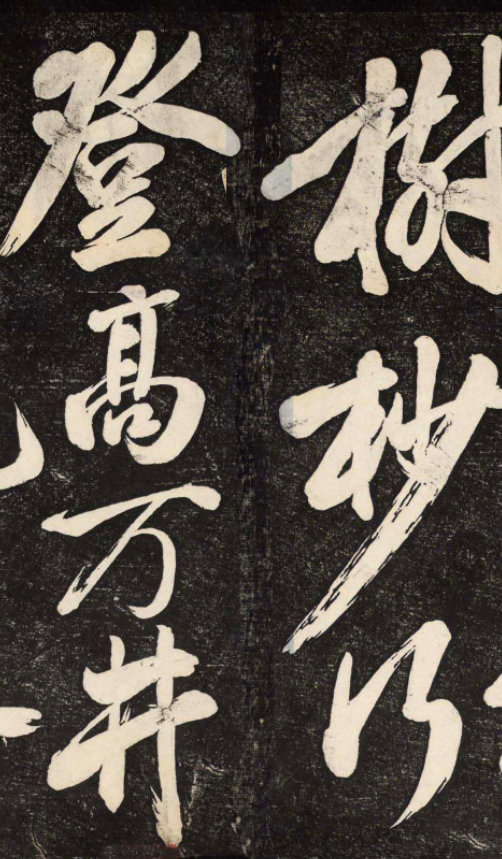 樹杪行
登高万井